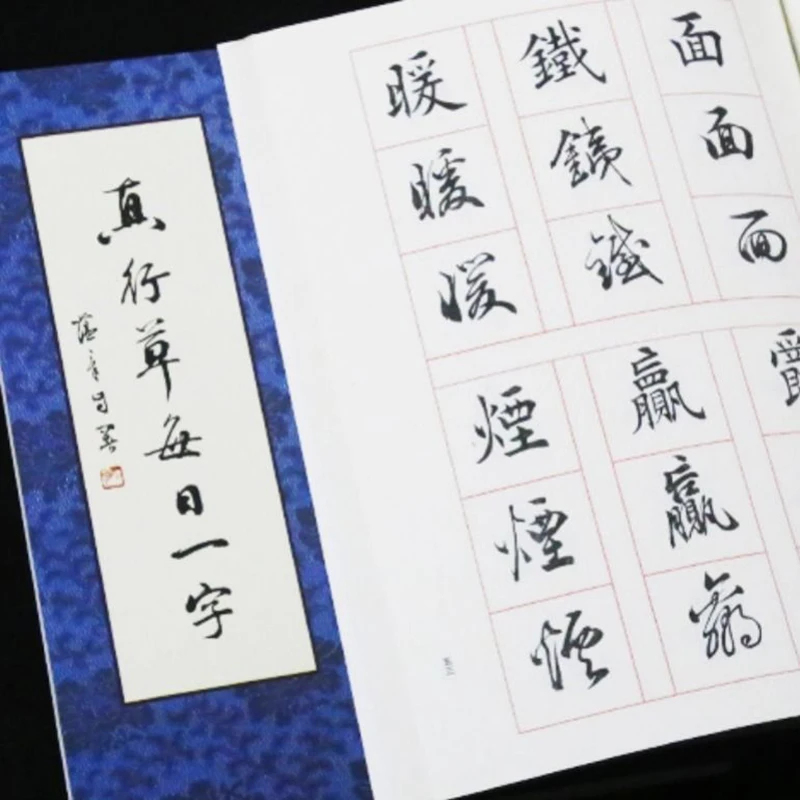 真行草每日一字
面
面
面
鐵
鐵
鐵
暖
暖
暖
贏
贏
贏
煙
煙
煙